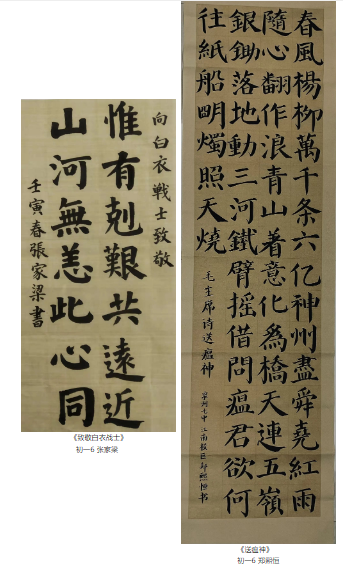 向白衣戦士致敬
惟有剋艱共遠近
山河無恙此心同
壬寅春張家梁書
《致敬白衣战士》
初一6 张家梁
春風楊柳萬千条六亿神州盡舜堯紅雨
隨心翻作浪青山着意化為橋天連五嶺
銀鋤落地動三河鐵臂摇借問瘟君欲何
往紙船明燭照天燒
毛主席诗送瘟神
《送瘟神》
初一6 郑熙恒